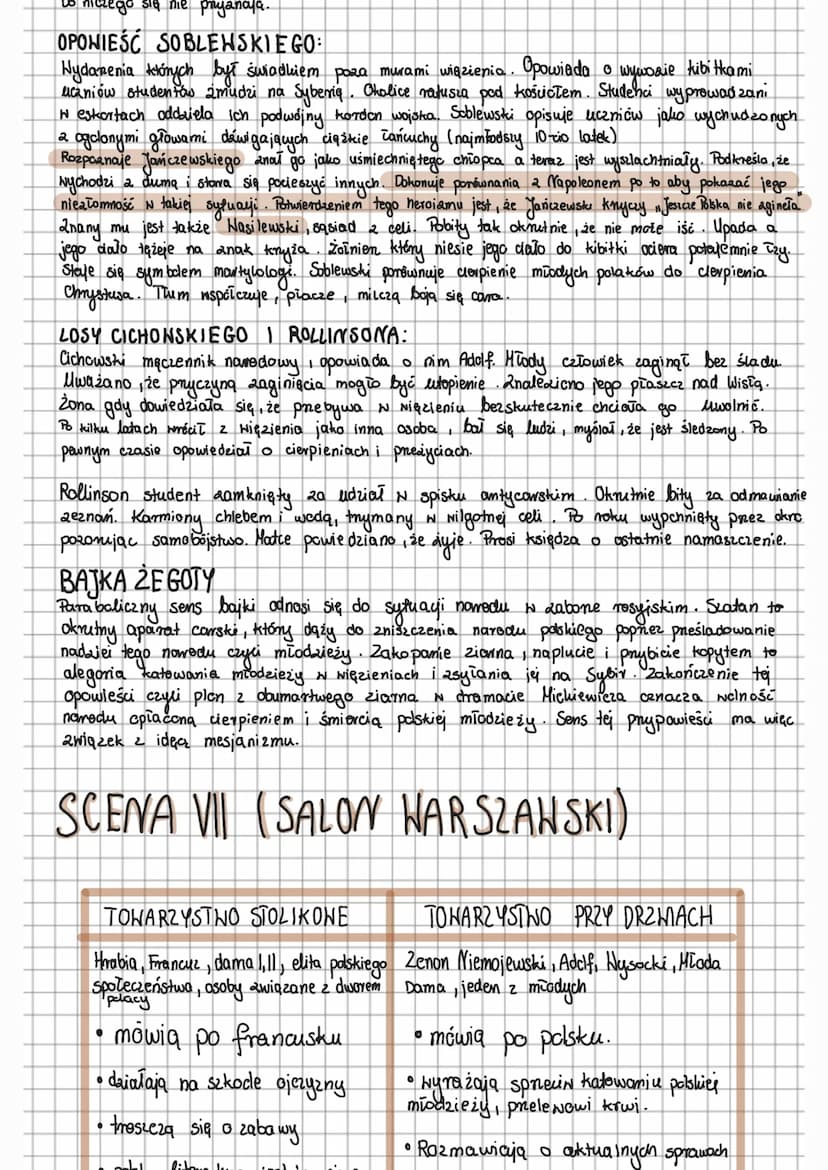 to niczego się nie przyznają.
OPOWIEŚĆ SOBLEWSKIEGO:
Wydarzenia których był świadkiem poza murami więzienia. Opowiada o wywozie kibitkami
uczniów studentów żmudzi na Syberię. Okolice ratusza pod kościołem. Studenci wyprowadzani
w eskortach oddziela ich podwójny kordon wojska. Soblewski opisuje uczniów jako wychudzonych
z ogolonymi głowami dźwigających ciężkie łańcuchy (najmłodszy 10-cio latek)
Rozpoznaje Jańczewskiego znał go jako uśmiechniętego chłopca a teraz jest wyszlachtniały. Podkreśla, że
wychodzi z dumą i stara się pocieszyć innych. Dokonuje porównania z Napoleonem po to aby pokazać jego
niezłomność w takiej sytuacji. Potwierdzeniem tego heroizmu jest, że Jańczewski krzyczy „Jeszcze Polska nie zginęła"
Znany mu jest także Wasilewski, sąsiad z celi. Pobity tak okrutnie, że nie może iść. Upada a
jego ciało tężeje na znak krzyża. Żołnierz który niesie jego ciało do kibitki ociera potajemnie łzy.
Staje się symbolem martylologi. Soblewski porównuje cierpienie młodych polaków do cierpienia
Chrystusa. Tłum współczuje, płacze, milczą boją się cara.
LOSY CICHOWSKIEGO I ROLLINSONA:
Cichowski męczennik narodowy, opowiada o nim Adolf. Młody człowiek zaginął bez śladu.
Uważano, że przyczyną zaginięcia mogło być utopienie. Znaleziono jego płaszcz nad Wisłą.
Żona gdy dowiedziała się, że przebywa w więzieniu bezskutecznie chciała go uwolnić.
Po kilku latach wrócił z więzienia jako inna osoba, bał się ludzi, myślał, że jest śledzony. Po
pewnym czasie opowiedział o cierpieniach i przeżyciach.
Rollinson student zamknięty za udział w spisku antycarskim. Okrutnie bity za odmawianie
zeznań. Karmiony chlebem i wodą, trzymany w wilgotnej celi. Po roku wypchnięty przez okno
pozorując samobójstwo. Matce powiedziano, że żyje. Prosi księdza o ostatnie namaszczenie.
BAJKA ŻEGOTY
Paraboliczny sens bajki odnosi się do sytuacji narodu w zaborze rosyjskim. Szatan to
okrutny aparat carski, który dąży do zniszczenia narodu polskiego poprzez prześladowanie
nadziei tego narodu czyli młodzieży. Zakopanie ziarna, naplucie i przybicie kopytem to
alegoria katowania młodzieży w więzieniach i zsyłania jej na Sybir. Zakończenie tej
opowieści czyli plon z obumartwego ziarna w dramacie Mickiewicza oznacza wolność
narodu opłaconą cierpieniem i śmiercią polskiej młodzieży. Sens tej przypowieści ma więc
związek z ideą mesjanizmu.
SCENA VII (SALON WARSZAWSKI)
TOWARZYSTWO STOLIKOWE
Hrabia, Francuz, dama I,II, elita polskiego
społeczeństwa, osoby związane z dworem
placy
• mówią po francusku
• działają na szkodę ojczyzny
• troszczą się o zabawy
TOWARZYSTWO PRZY DRZWIACH
Zenon Niemojewski, Adolf, Wysocki, Młoda
Dama, jeden z młodych
• mówią po polsku.
• wyrażają sprzeciw katowaniu polskiej
młodzieży, przelewowi krwi.
• Rozmawiają o aktualnych sprawach